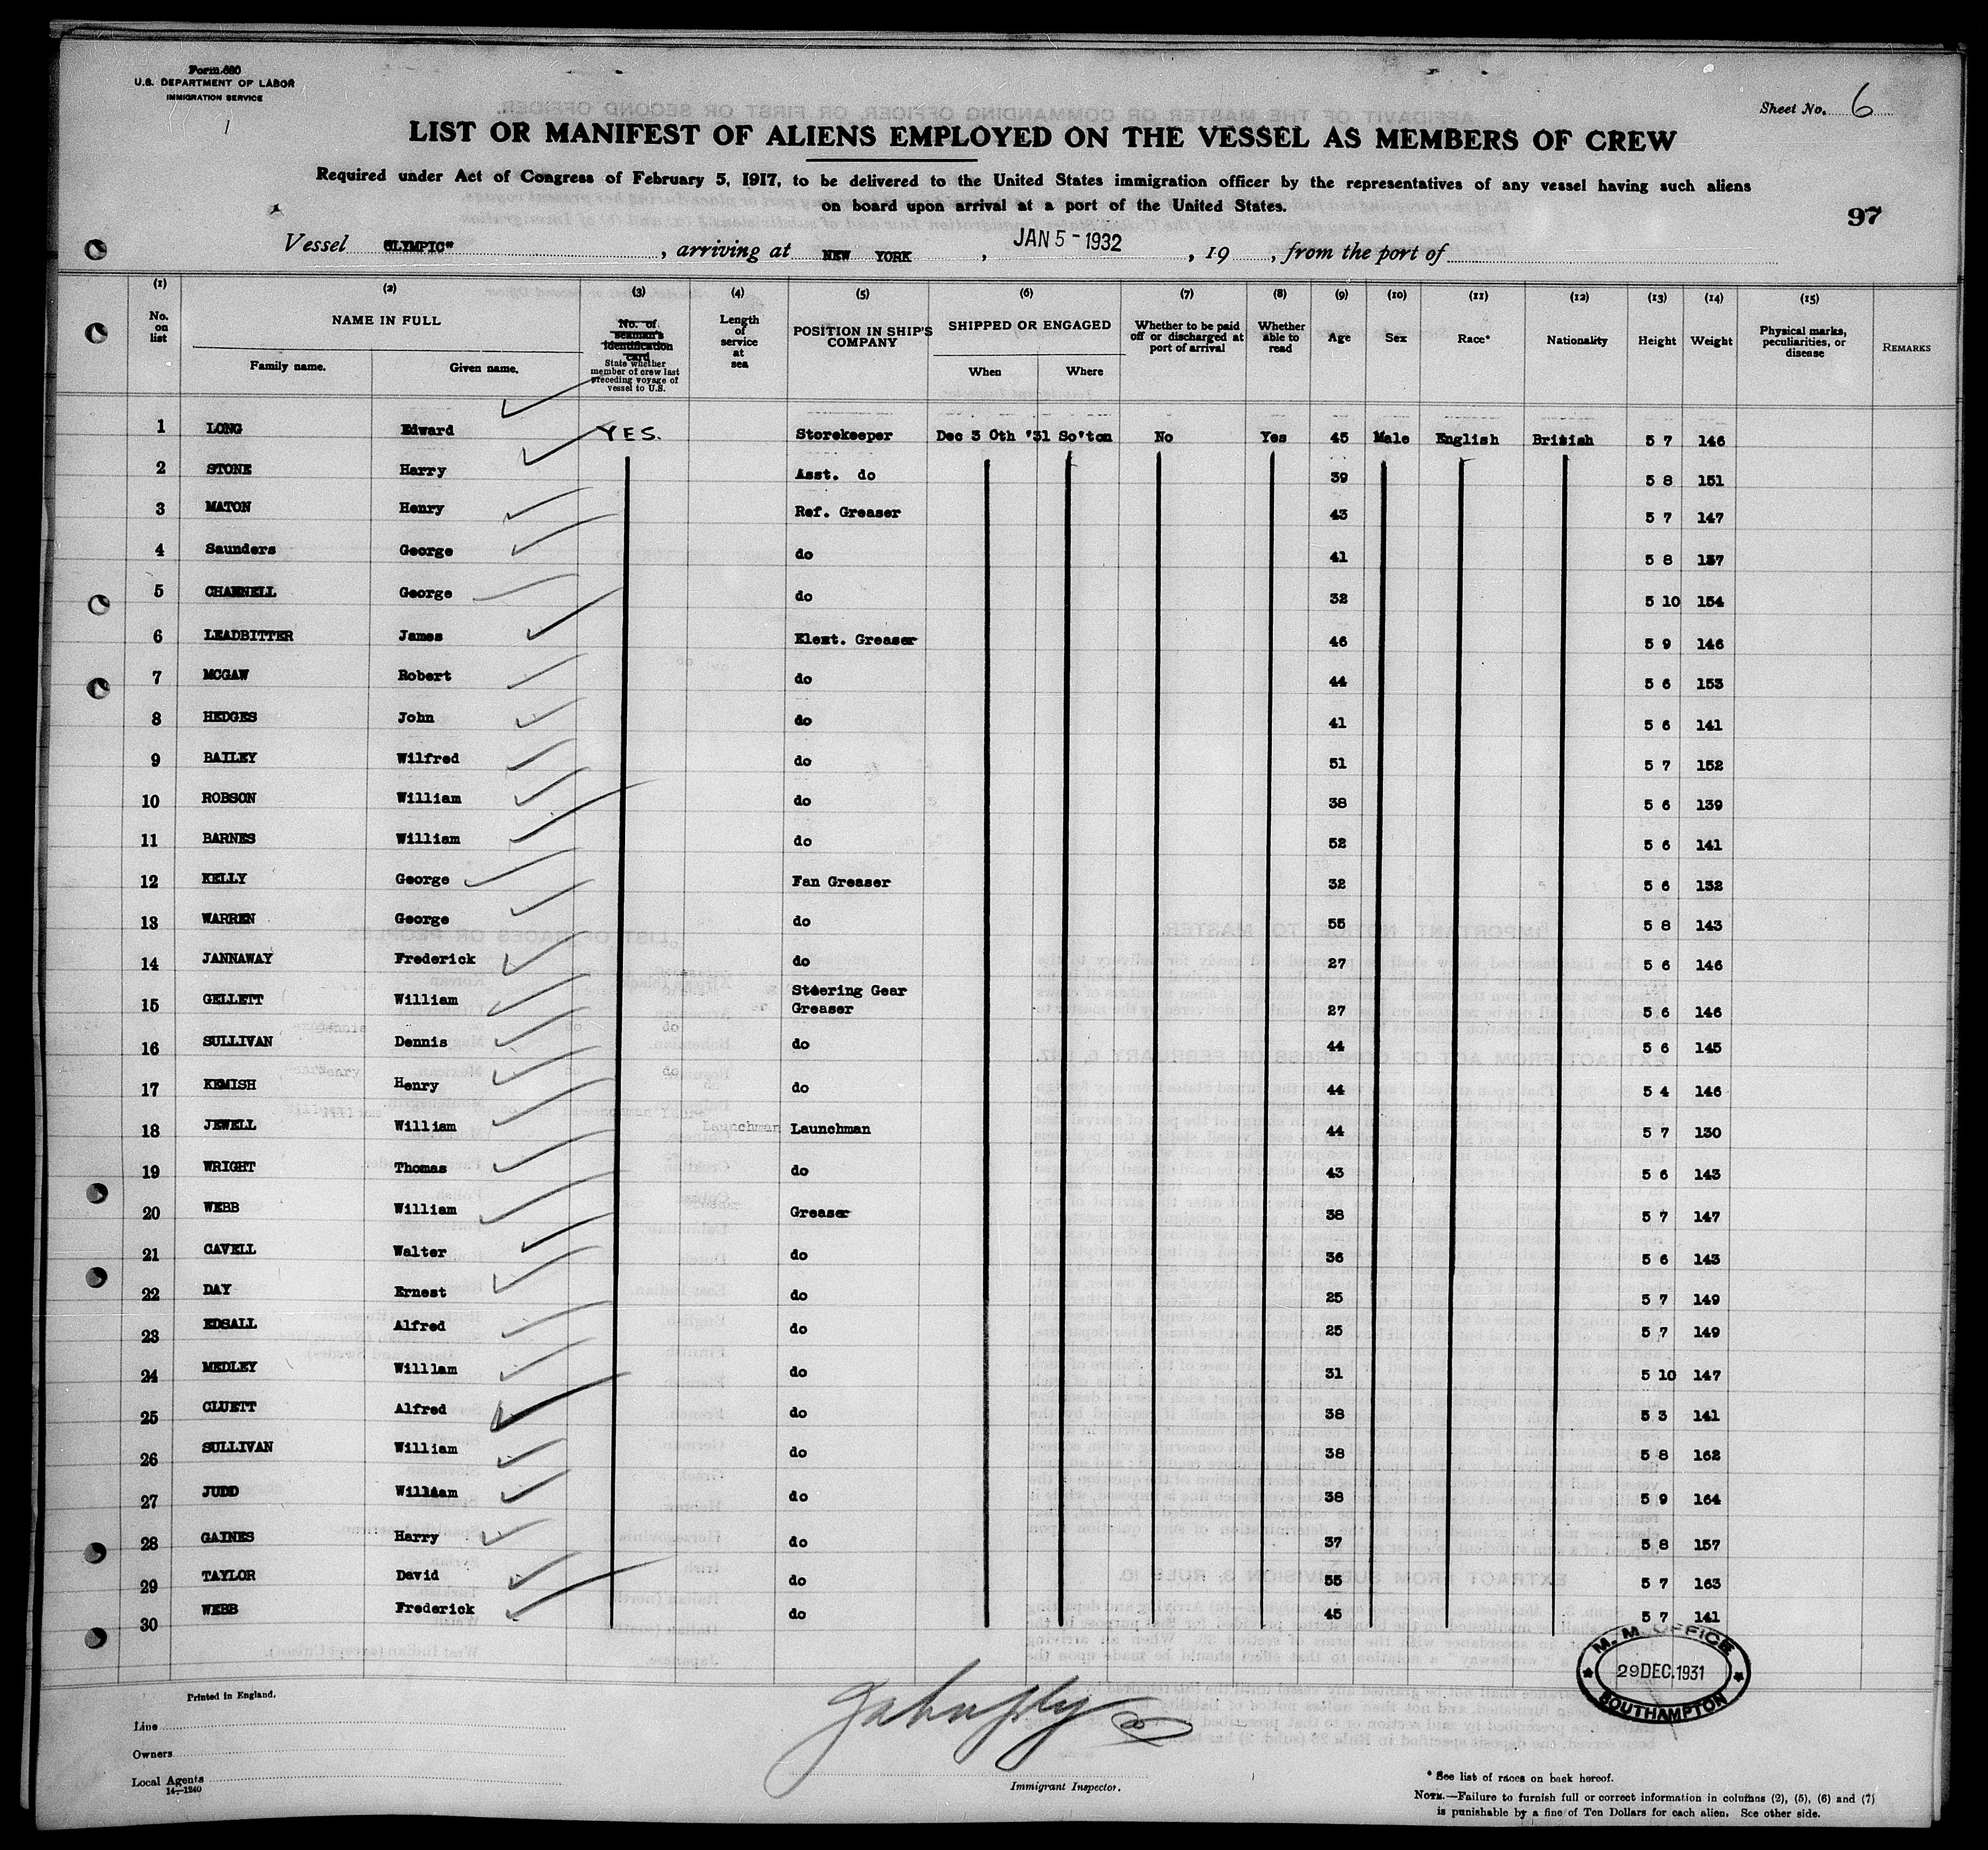 Form 680
U.S. DEPARTMENT OF LABOR
IMMIGRATION SERVICE
1
Sheet No. 6
LIST OR MANIFEST OF ALIENS EMPLOYED ON THE VESSEL AS MEMBERS OF CREW
Required under Act of Congress of February 5, 1917, to be delivered to the United States immigration officer by the representatives of any vessel having such aliens
on board upon arrival at a port of the United States.
97
Vessel OLYMPIC", arriving at NEW YORK, JAN 5 - 1932, 19 , from the port of
(1) (2) (3) (4) (5) (6) (7) (8) (9) (10) (11) (12) (13) (14) (15)
No. on list NAME IN FULL Family name. Given name. No. of seaman's identification card State whether member of crew last preceding voyage of vessel to U.S. Length of service at sea POSITION IN SHIP'S COMPANY SHIPPED OR ENGAGED When Where Whether to be paid off or discharged at port of arrival Whether able to read Age Sex Race* Nationality Height Weight Physical marks, peculiarities, or disease REMARKS
1 LONG Edward YES. Storekeeper Dec 3 0th '31 So'ton No Yes 45 Male English British 5 7 146
2 STONE Harry Asst. do 39 5 8 151
3 MATON Henry Ref. Greaser 43 5 7 147
4 Saunders George do 41 5 8 137
5 CHANNELL George do 32 5 10 154
6 LEADBITTER James Elext. Greaser 46 5 9 146
7 MCGAW Robert do 44 5 6 153
8 HEDGES John do 41 5 6 141
9 BAILEY Wilfred do 51 5 7 152
10 ROBSON William do 38 5 6 139
11 BARNES William do 52 5 6 141
12 KELLY George Fan Greaser 32 5 6 132
13 WARREN George do 55 5 8 143
14 JANNAWAY Frederick do 27 5 6 146
15 GELLETT William Steering Gear Greaser 27 5 6 146
16 SULLIVAN Dennis do 44 5 6 145
17 KEMISH Henry do 44 5 4 146
18 JEWELL William Launchman 44 5 7 130
19 WRIGHT Thomas do 43 5 6 143
20 WEBB William Greaser 38 5 7 147
21 CAVELL Walter do 36 5 6 143
22 DAY Ernest do 25 5 7 149
23 EDSALL Alfred do 25 5 7 149
24 MEDLEY William do 31 5 10 147
25 CLUETT Alfred do 38 5 3 141
26 SULLIVAN William do 38 5 8 162
27 JUDD William do 38 5 9 164
28 GAINES Harry do 37 5 8 157
29 TAYLOR David do 55 5 7 163
30 WEBB Frederick do 45 5 7 141
M. M. OFFICE
29 DEC. 1931
SOUTHAMPTON
Printed in England.
Line
Owners
Local Agents
14—1240
Immigrant Inspector.
* See list of races on back hereof.
NOTE.—Failure to furnish full or correct information in columns (2), (5), (6) and (7)
is punishable by a fine of Ten Dollars for each alien. See other side.